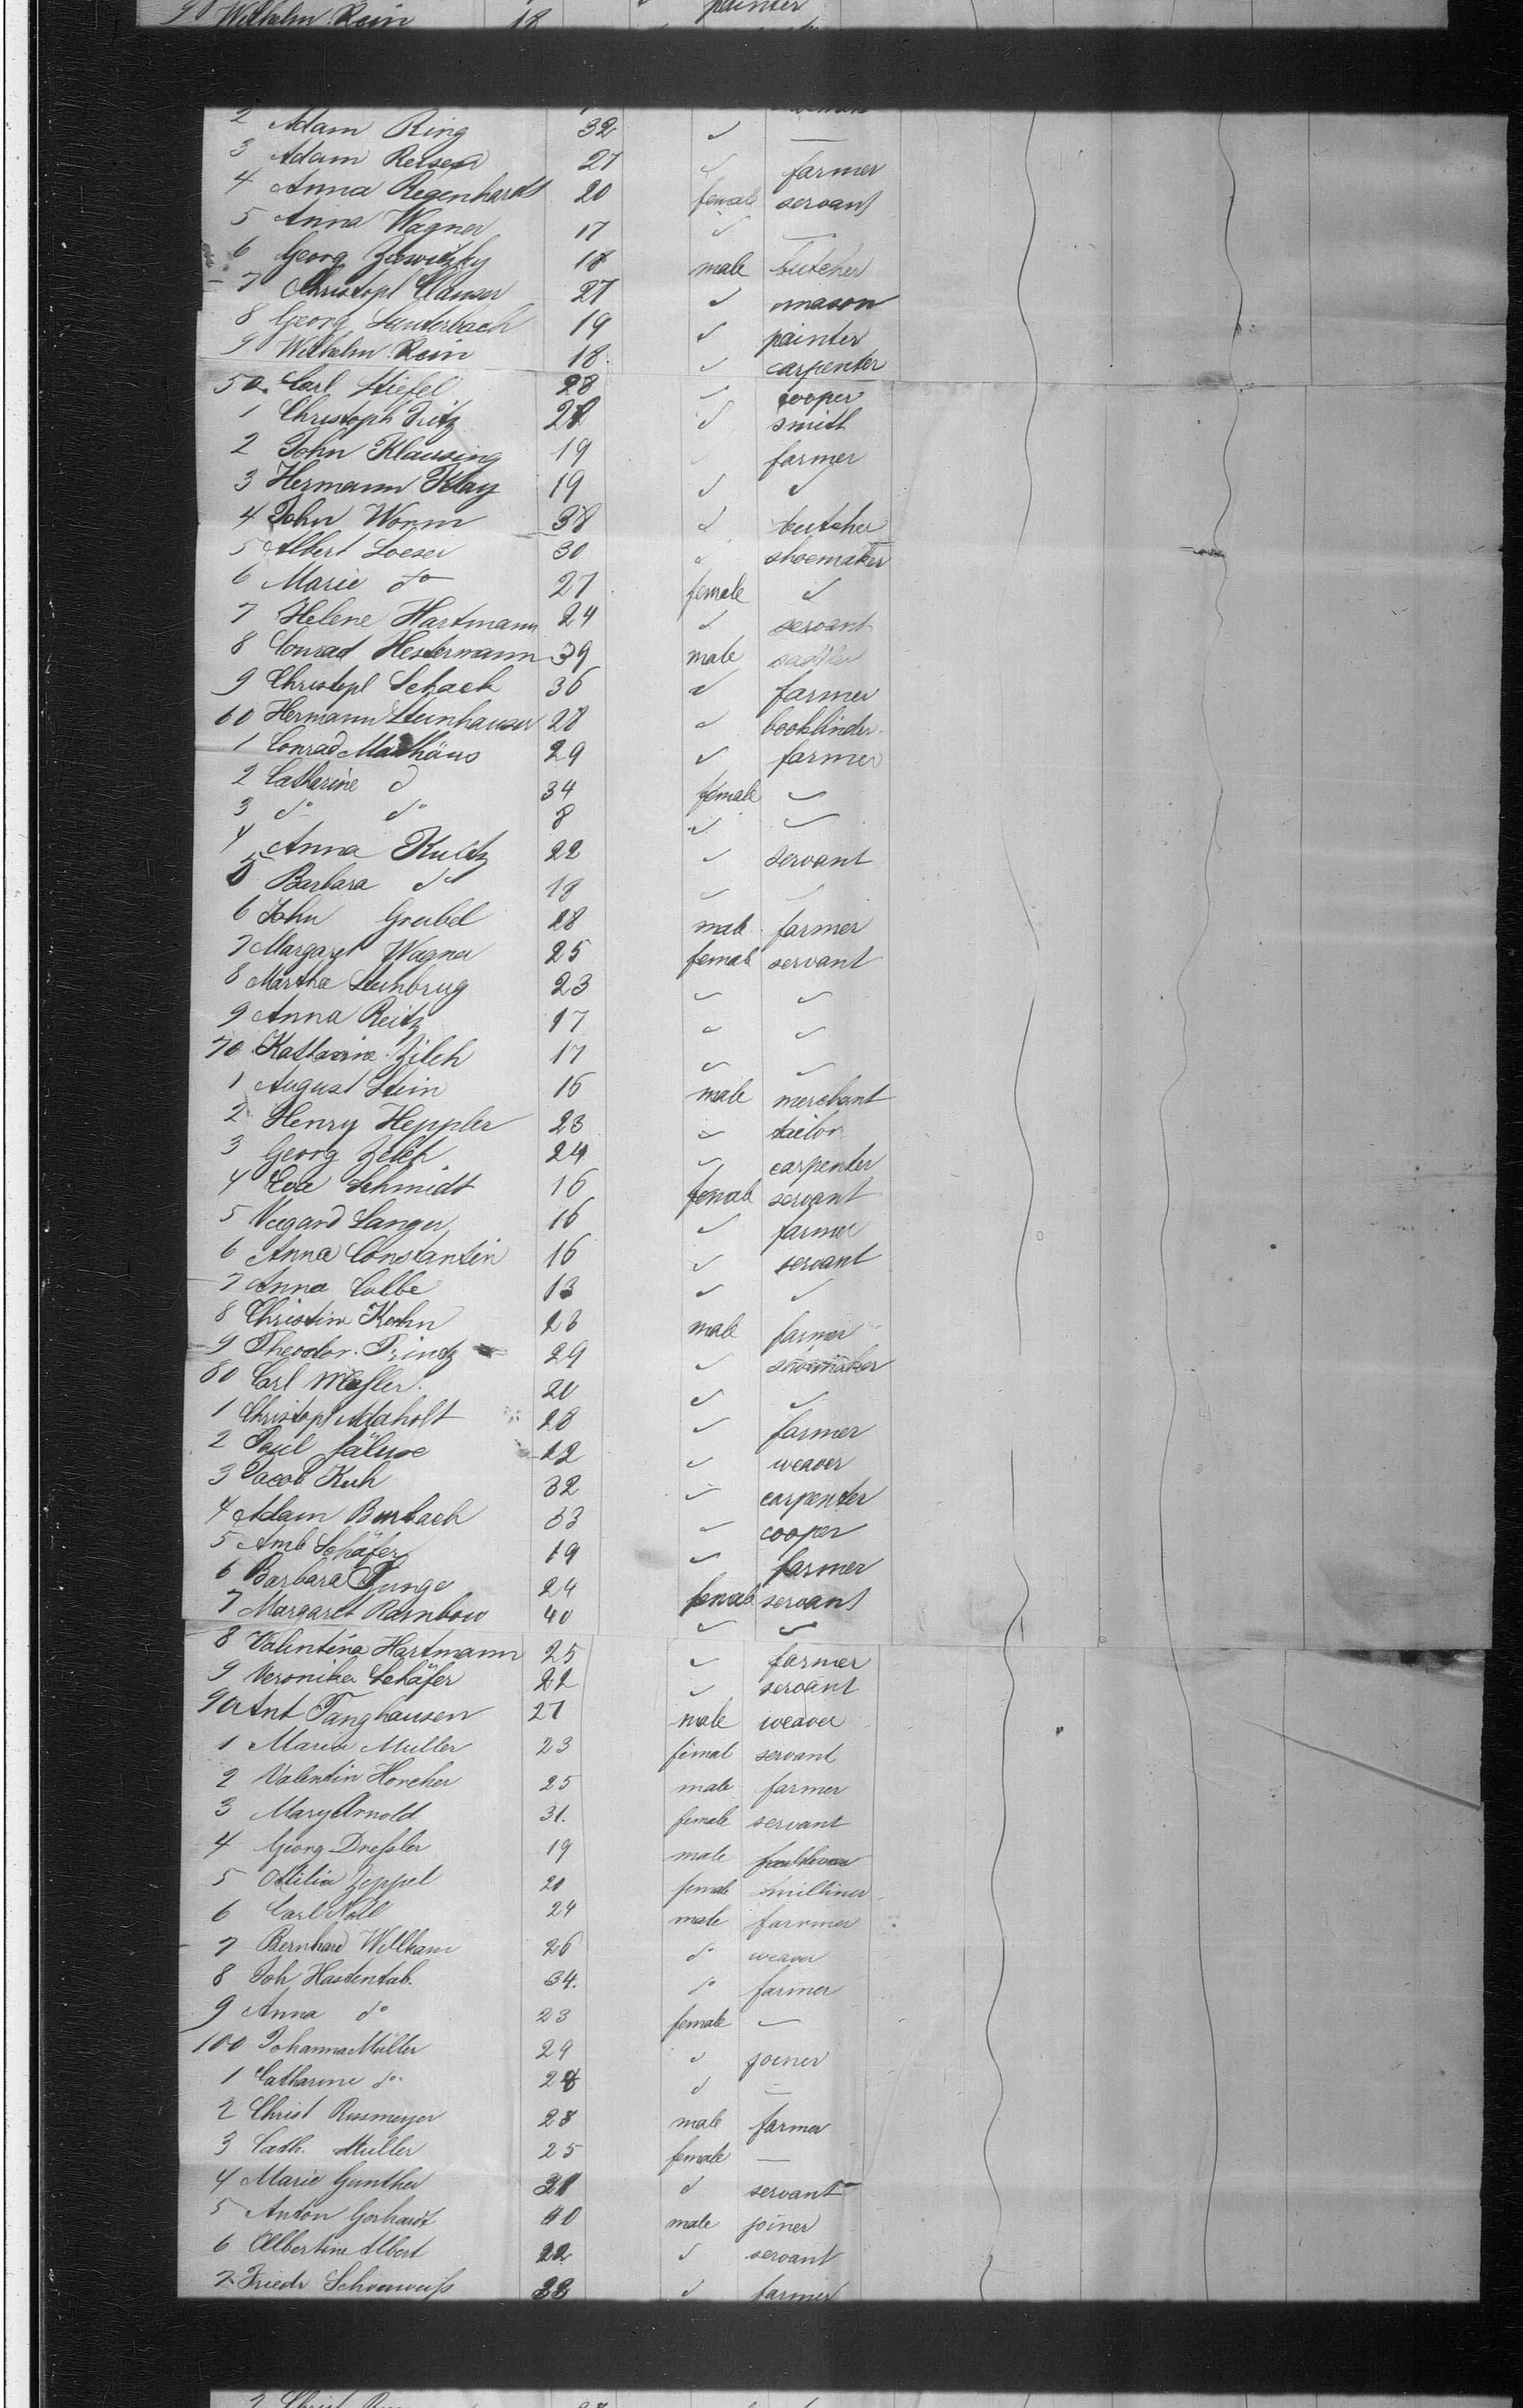 90 Wilhelm Rein 18 painter
2 Adam Ring 32 ✓ —
3 Adam 27 ✓ farmer
4 Anna Regenhardt 20 female servant
5 Anna Wagner 17 ✓ —
6 Georg 18 male butcher
7 Christopl Clauser 27 ✓ mason
8 Georg Lauterbach 19 ✓ painter
9 Wilhelm Rein 18 ✓ carpenter
50 Carl Stiefel 28 ✓ cooper
1 Christoph 28 ✓ smith
2 John Klausing 19 ✓ farmer
3 Hermann Klay 19 ✓ ✓
4 John Worm 38 ✓ butcher
5 Albert Loeser 30 ✓ shoemaker
6 Marie do 27 female ✓
7 Helene Hartmann 24 ✓ servant
8 Conrad Hestermann 39 male sadler
9 Christopl Schack 36 ✓ farmer
60 Hermann Steinhauser 28 ✓ bookbinder
1 Conrad Mathäus 29 ✓ farmer
2 Catharine d 34 female ✓
3 do do 8 ✓ ✓
4 Anna Kultz 22 ✓ servant
5 Barbara do 18 ✓ ✓
6 John Greubel 28 male farmer
7 Margaret Wagner 25 female servant
8 Martha Steinbrug 23 ✓ ✓
9 Anna Reitz 17 ✓ ✓
70 Katharina Zilch 17 ✓ ✓
1 August Stein 16 male merchant
2 Henry Heppler 23 ✓ tailor
3 Georg Zilch 24 ✓ carpenter
4 Eva Schmidt 16 female servant
5 Langer 16 ✓ farmer
6 Anna Constantin 16 ✓ servant
7 Anna Colbe 13 ✓ ✓
8 Christian Kohn 23 male farmer
9 Theodor Printz 29 ✓ shoemaker
80 Carl 20 ✓ ✓
1 Christopl Maholt 28 ✓ farmer
2 Paul 22 ✓ weaver
3 Jacob Kuh 32 ✓ carpenter
4 Adam Burbach 33 ✓ cooper
5 Amb Schäfer 19 ✓ farmer
6 Barbara Junge 24 female servant
7 Margaret Rambow 40 ✓ ✓
8 Valentina Hartmann 25 ✓ farmer
9 Veronika Schäfer 22 ✓ servant
90 Ant Tanghausen 27 male weaver
1 Maria Muller 23 female servant
2 Valentin Horcher 25 male farmer
3 Mary Arnold 31. female servant
4 Georg Dreßler 19 male
5 Ottilia Zeppel 20 female milliner
6 Carl Noll 24 male farmer
7 Bernhard Willkam 26 do weaver
8 Joh Hastentab. 34. do farmer
9 Anna do 23 female ✓
100 Johanna Müller 29 ✓ joiner
1 Catharine do 28 ✓ —
2 Christ Rusmeyer 28 male farmer
3 Cath. Muller 25 female —
4 Marie Gunther 31 ✓ servant
5 Anton Gerhardt 40 male joiner
6 Albertine Albert 22 ✓ servant
7 Friedr Schonweiß 33 ✓ farmer